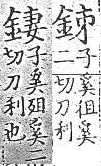 子奚徂奚
二切刀利
子奚徂奚二
切刀利也